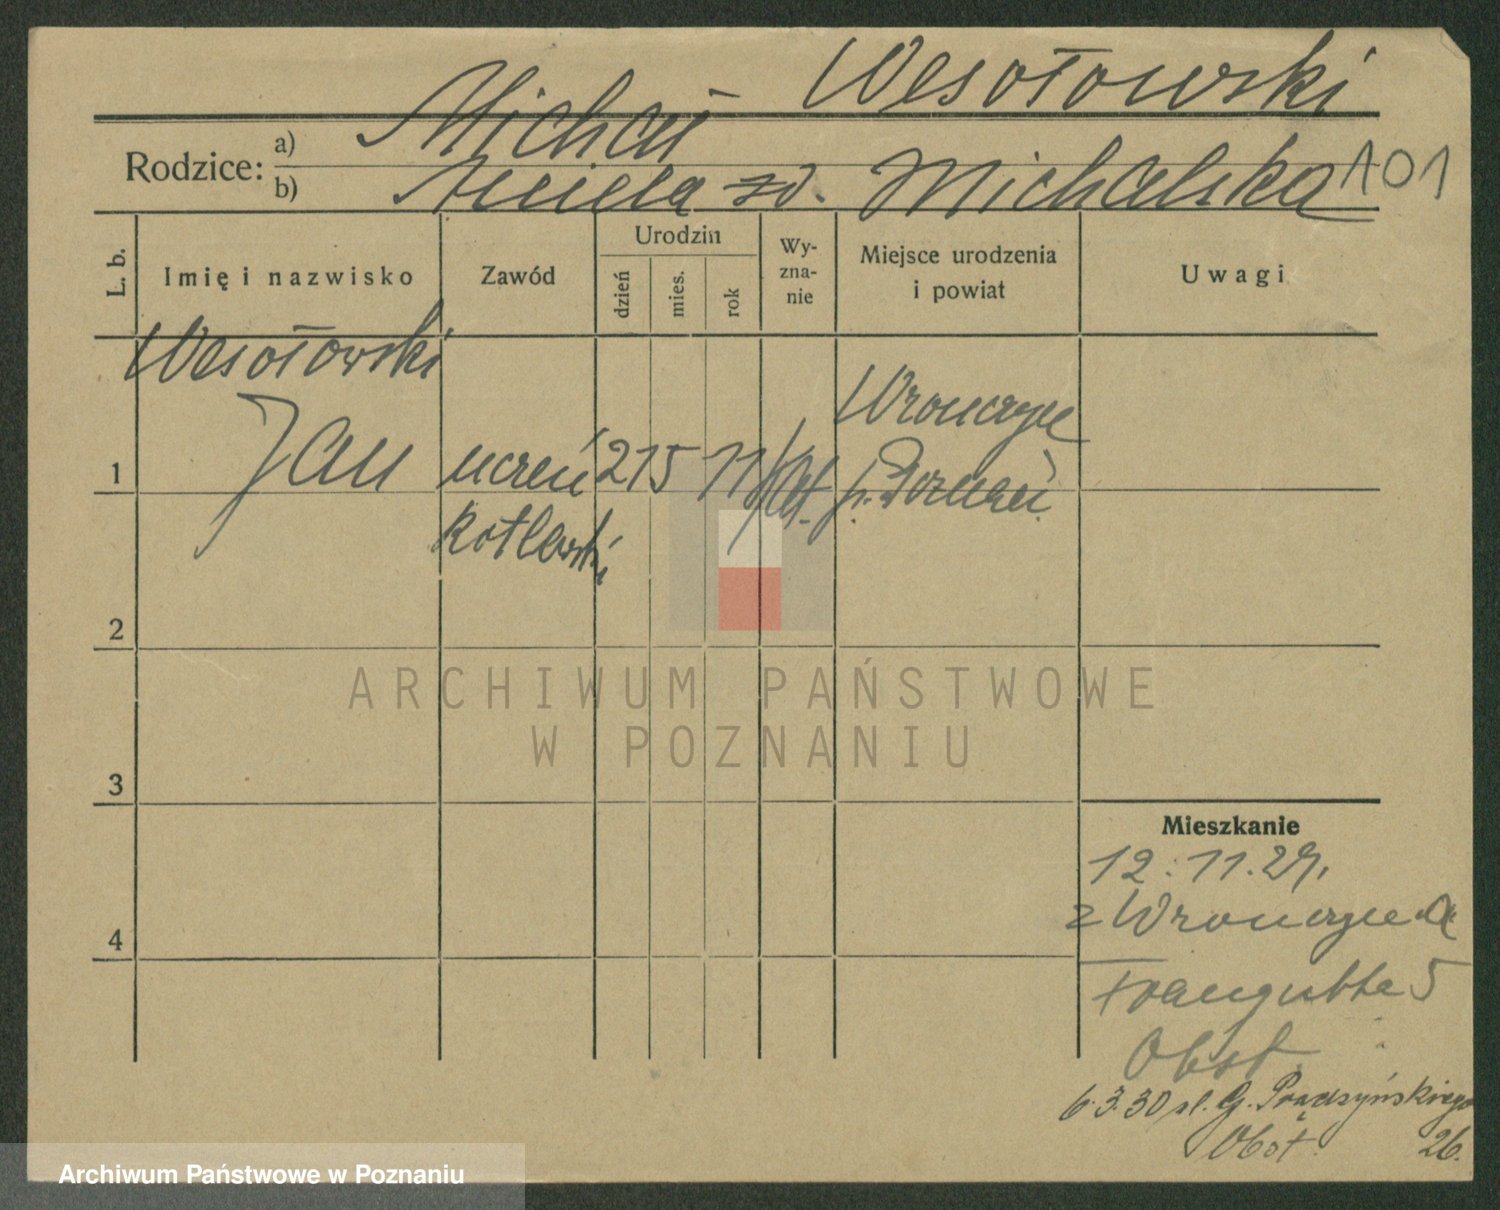 Wesołowski
Rodzice: a) Michał
b) Aniela zd. Michalska 101
L. b.
Imię i nazwisko
Zawód
Urodzin
dzień
mies.
rok
Wy-
zna-
nie
Miejsce urodzenia
i powiat
Uwagi
Wesołowski
1 Jan uczeń 21 5 11 kat.
kotlarski
Wronczyn
p. Poznań
2
ARCHIWUM PAŃSTWOWE
W POZNANIU
3
4
Mieszkanie
12.11.29.
z Wronczyna
Traugutta 5
Obst.
6.3.30 ul. G. Prądzyńskiego
Obst. 26.
Archiwum Państwowe w Poznaniu